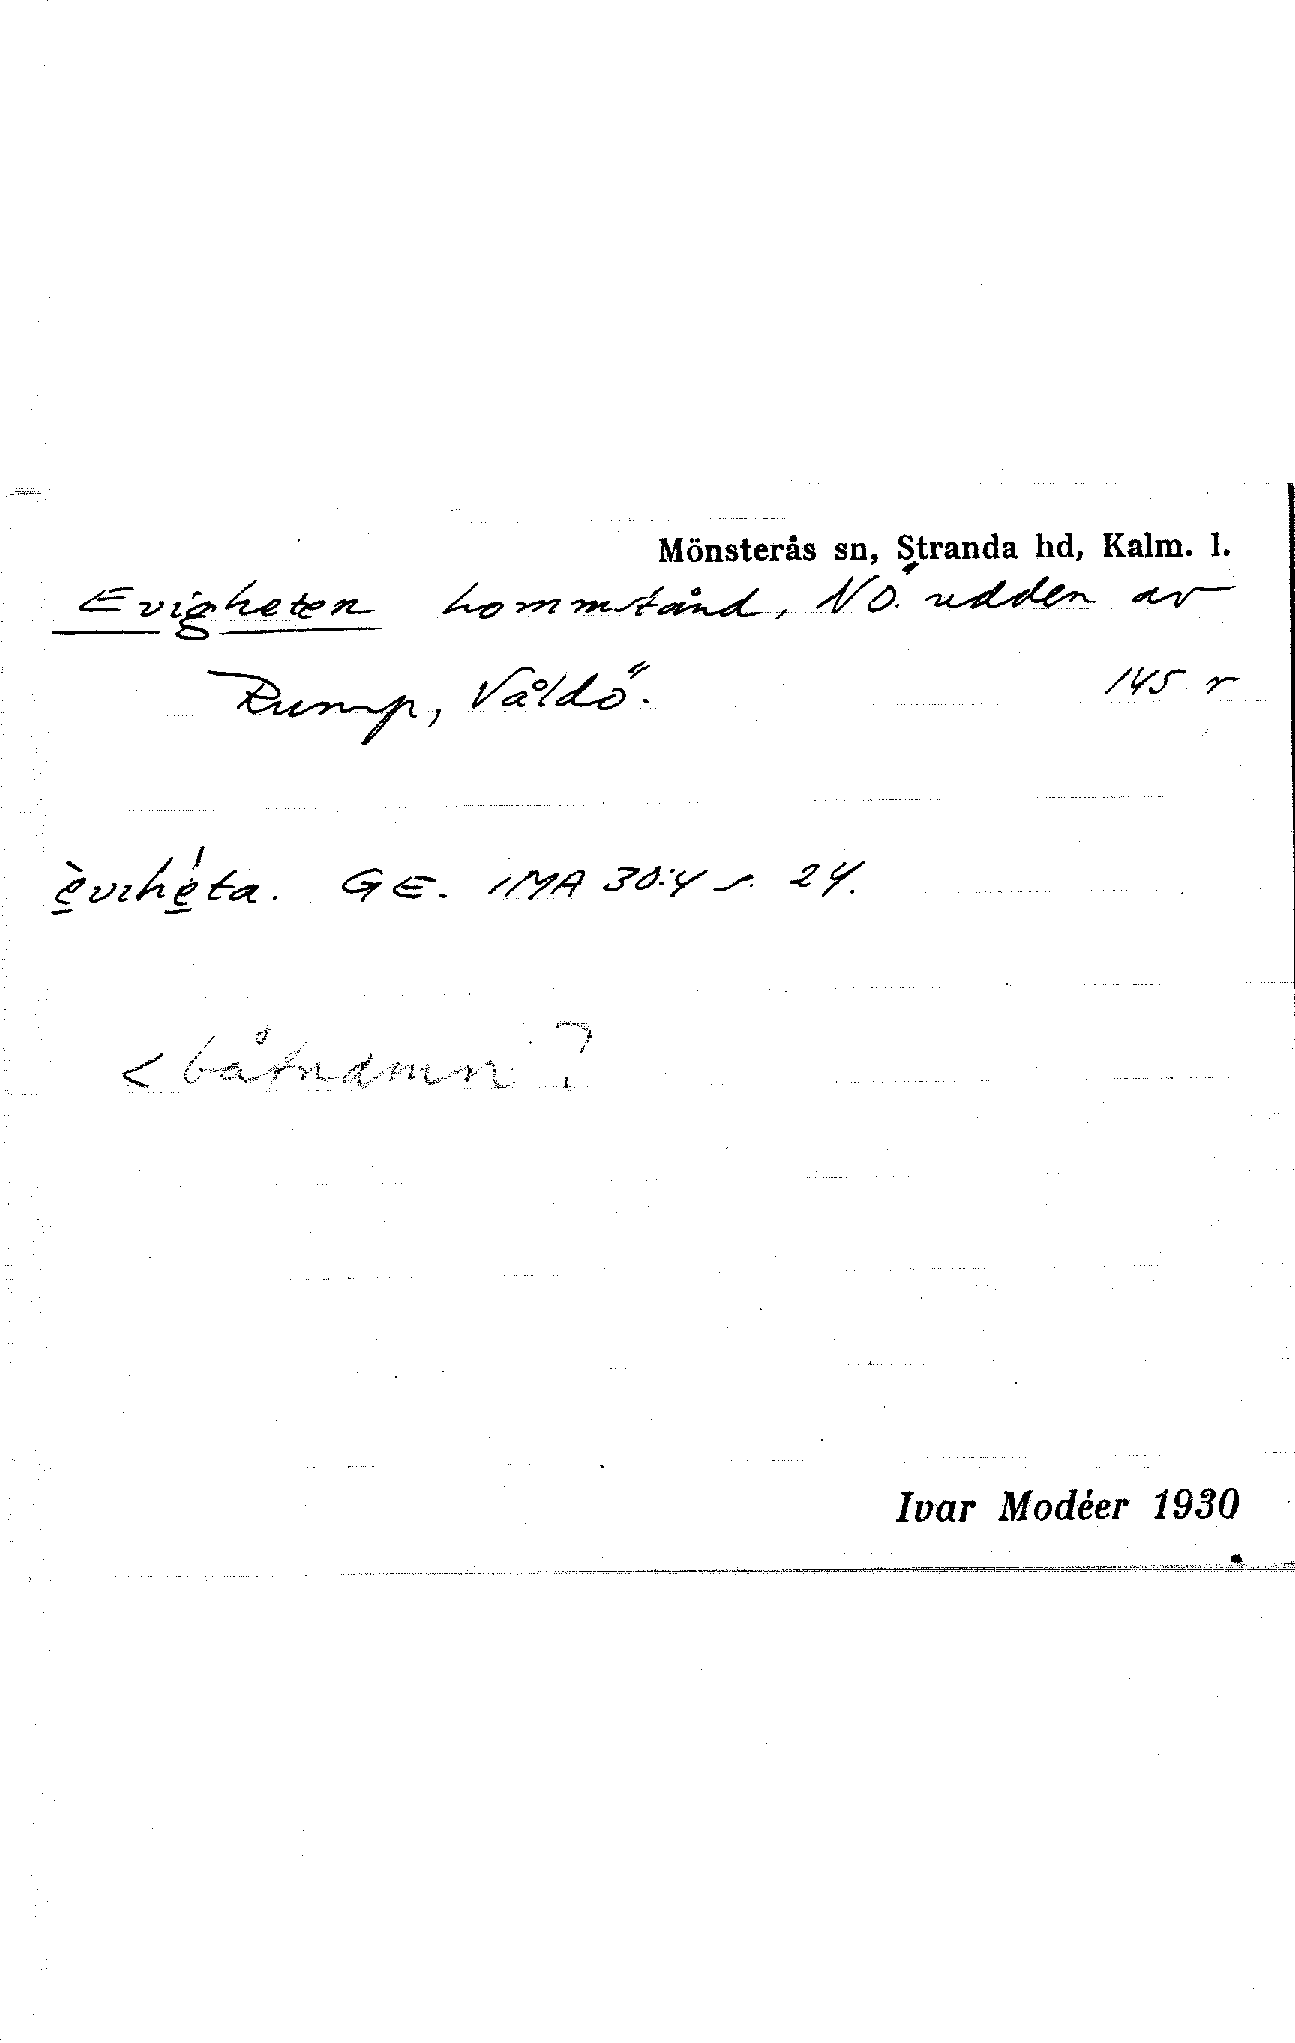 Mönsterås sn, Stranda hd, Kalm. l.
Evigheten hommstånd, NO. udden av
Rump, Våldö. 145 r
èvɩhéta. GE. IMA 30:4 s. 24.
< båtnamn ?
Ivar Modéer 1930